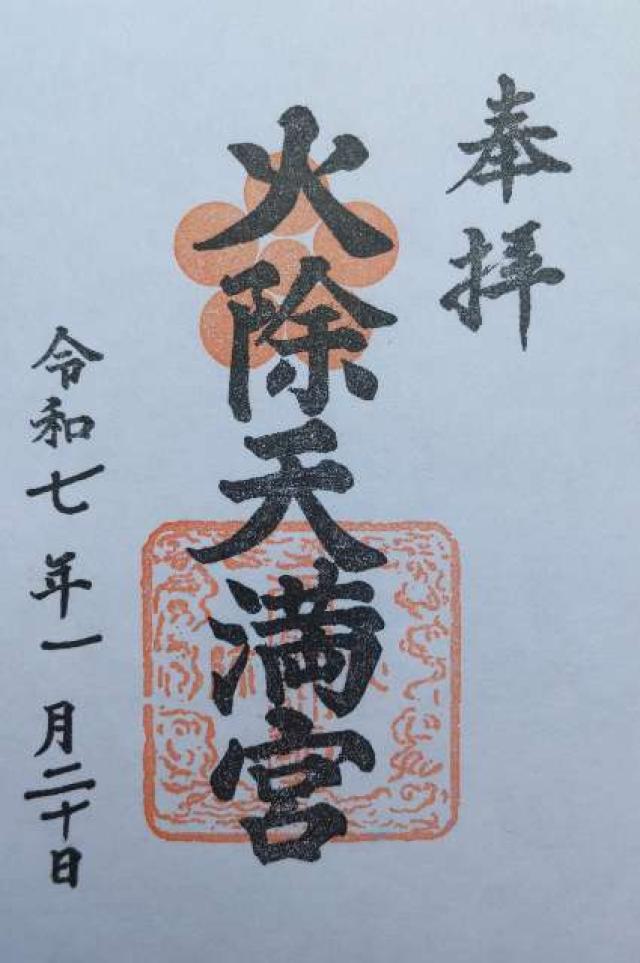 奉拝
火除天満宮
令和七年一月二十日